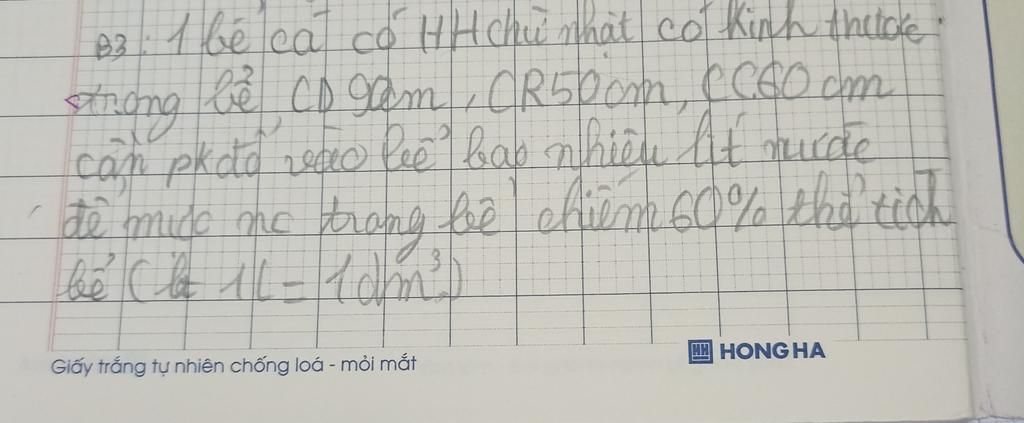 B3: 1 bể cá có HH chữ nhật có kinh thước
trong bể CD 90cm, CR50cm, CC60cm
cần pk đổ vào bể bao nhiêu lít nước
để mực nc trong bể chiếm 60% thể tích
bể ( 1L = 1dm³)
Giấy trắng tự nhiên chống loá - mỏi mắt
HH HONG HA